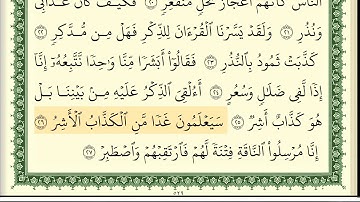 ٱلنَّاسَ كَأَنَّهُمْ أَعْجَازُ نَخْلٍ مُّنقَعِرٍ ٢٠ فَكَيْفَ كَانَ عَذَابِى
وَنُذُرِ ٢١ وَلَقَدْ يَسَّرْنَا ٱلْقُرْءَانَ لِلذِّكْرِ فَهَلْ مِن مُّدَّكِرٍ ٢٢
كَذَّبَتْ ثَمُودُ بِٱلنُّذُرِ ٢٣ فَقَالُوٓا۟ أَبَشَرًا مِّنَّا وَٰحِدًا نَّتَّبِعُهُۥٓ إِنَّآ
إِذًا لَّفِى ضَلَٰلٍ وَسُعُرٍ ٢٤ أَءُلْقِىَ ٱلذِّكْرُ عَلَيْهِ مِنۢ بَيْنِنَا بَلْ
هُوَ كَذَّابٌ أَشِرٌ ٢٥ سَيَعْلَمُونَ غَدًا مَّنِ ٱلْكَذَّابُ ٱلْأَشِرُ ٢٦
إِنَّا مُرْسِلُوا۟ ٱلنَّاقَةِ فِتْنَةً لَّهُمْ فَٱرْتَقِبْهُمْ وَٱصْطَبِرْ ٢٧
٥٢٩